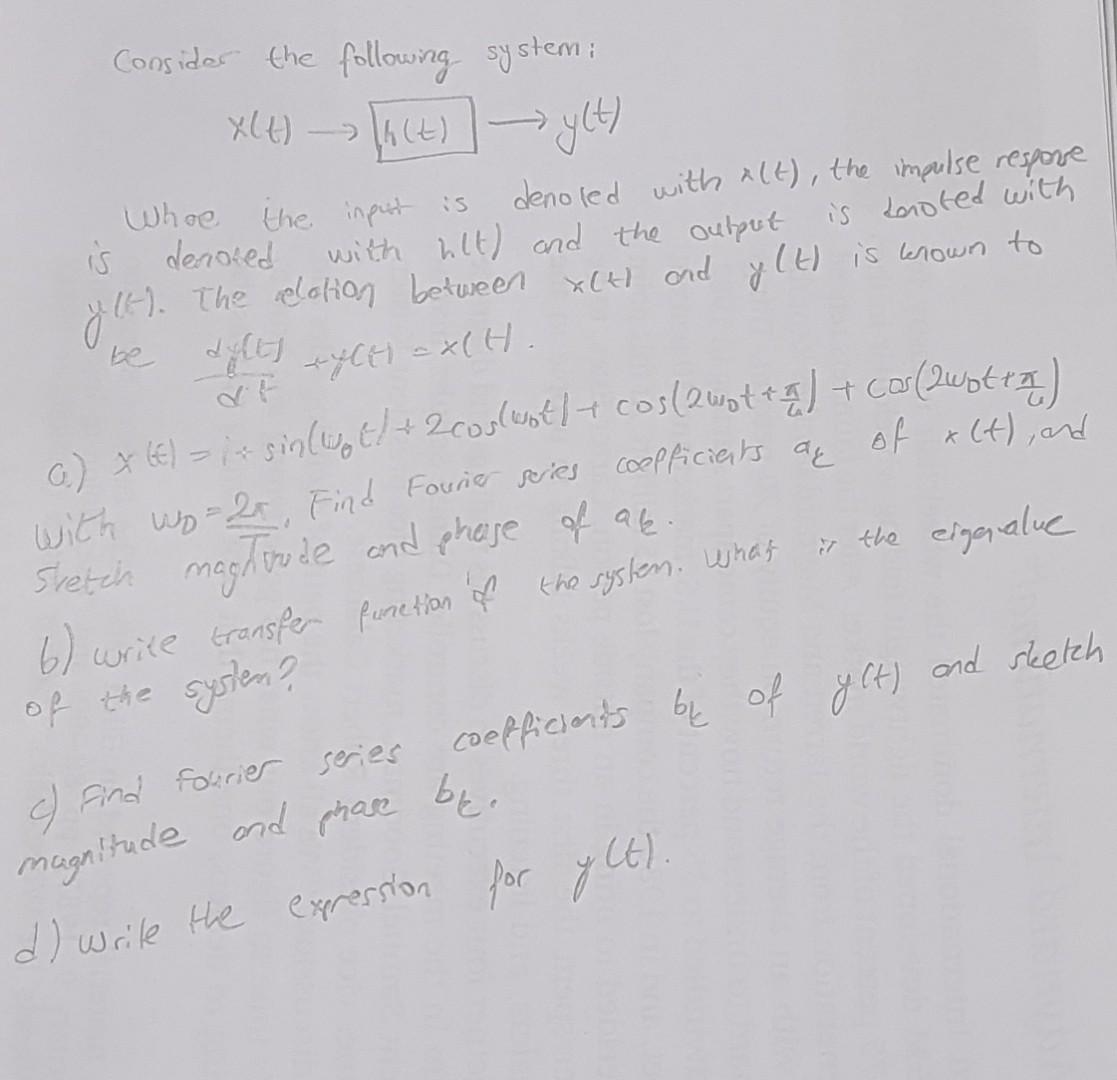 Consider the following system:
x(t) → h(t) → y(t)
Whoe the input is denoted with x(t), the impulse respone
is denoted with h(t) and the output is denoted with
y(t). The relation between x(t) and y(t) is known to
be dy(t)/dt + y(t) = x(t).
a) x(t) = 1 + sin(w₀t) + 2cos(w₀t) + cos(2w₀t + π/4) + cos(2w₀t + π/4)
with w₀ = 2π/T, Find Fourier series coefficients aₖ of x(t), and
Sketch magnitude and phase of aₖ.
b) write transfer function of the system. What is the eigenvalue
of the system?
c) Find fourier series coefficients bₖ of y(t) and sketch
magnitude and phase bₖ.
d) write the expression for y(t).